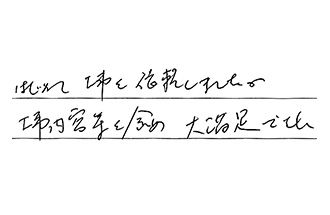 はじめて 工事を依頼しましたが
工事内容等を含め 大満足でした